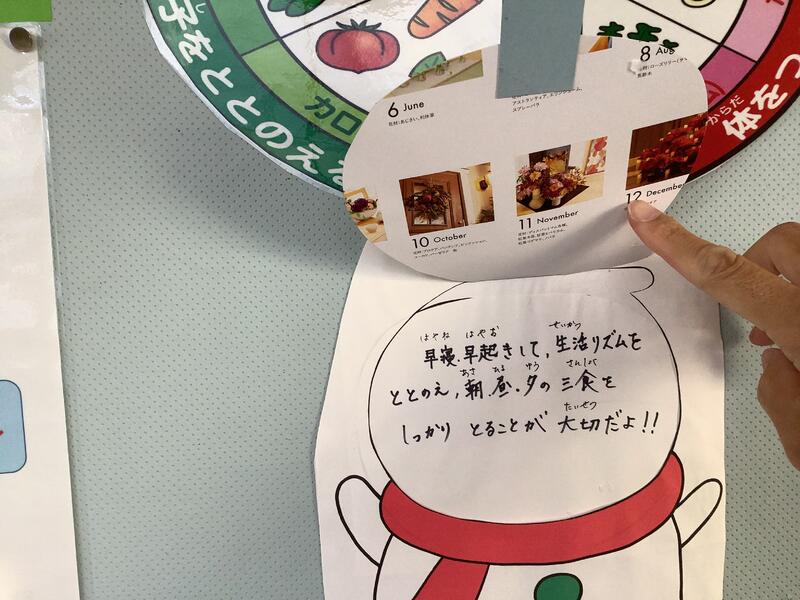 子をととのえる
カロ
体をつ
からだ
6 June
花材:あじさい、利休草
アストランティア、エリンジューム、
スプレーバラ
8 Aug
10 October
11 November
12 December
はやね はやお せいかつ
早寝、早起きして、生活リズムを
あさ ひる ゆう さんしょく
ととのえ、朝、昼、夕の 三食を
たいせつ
しっかり とることが 大切だよ!!